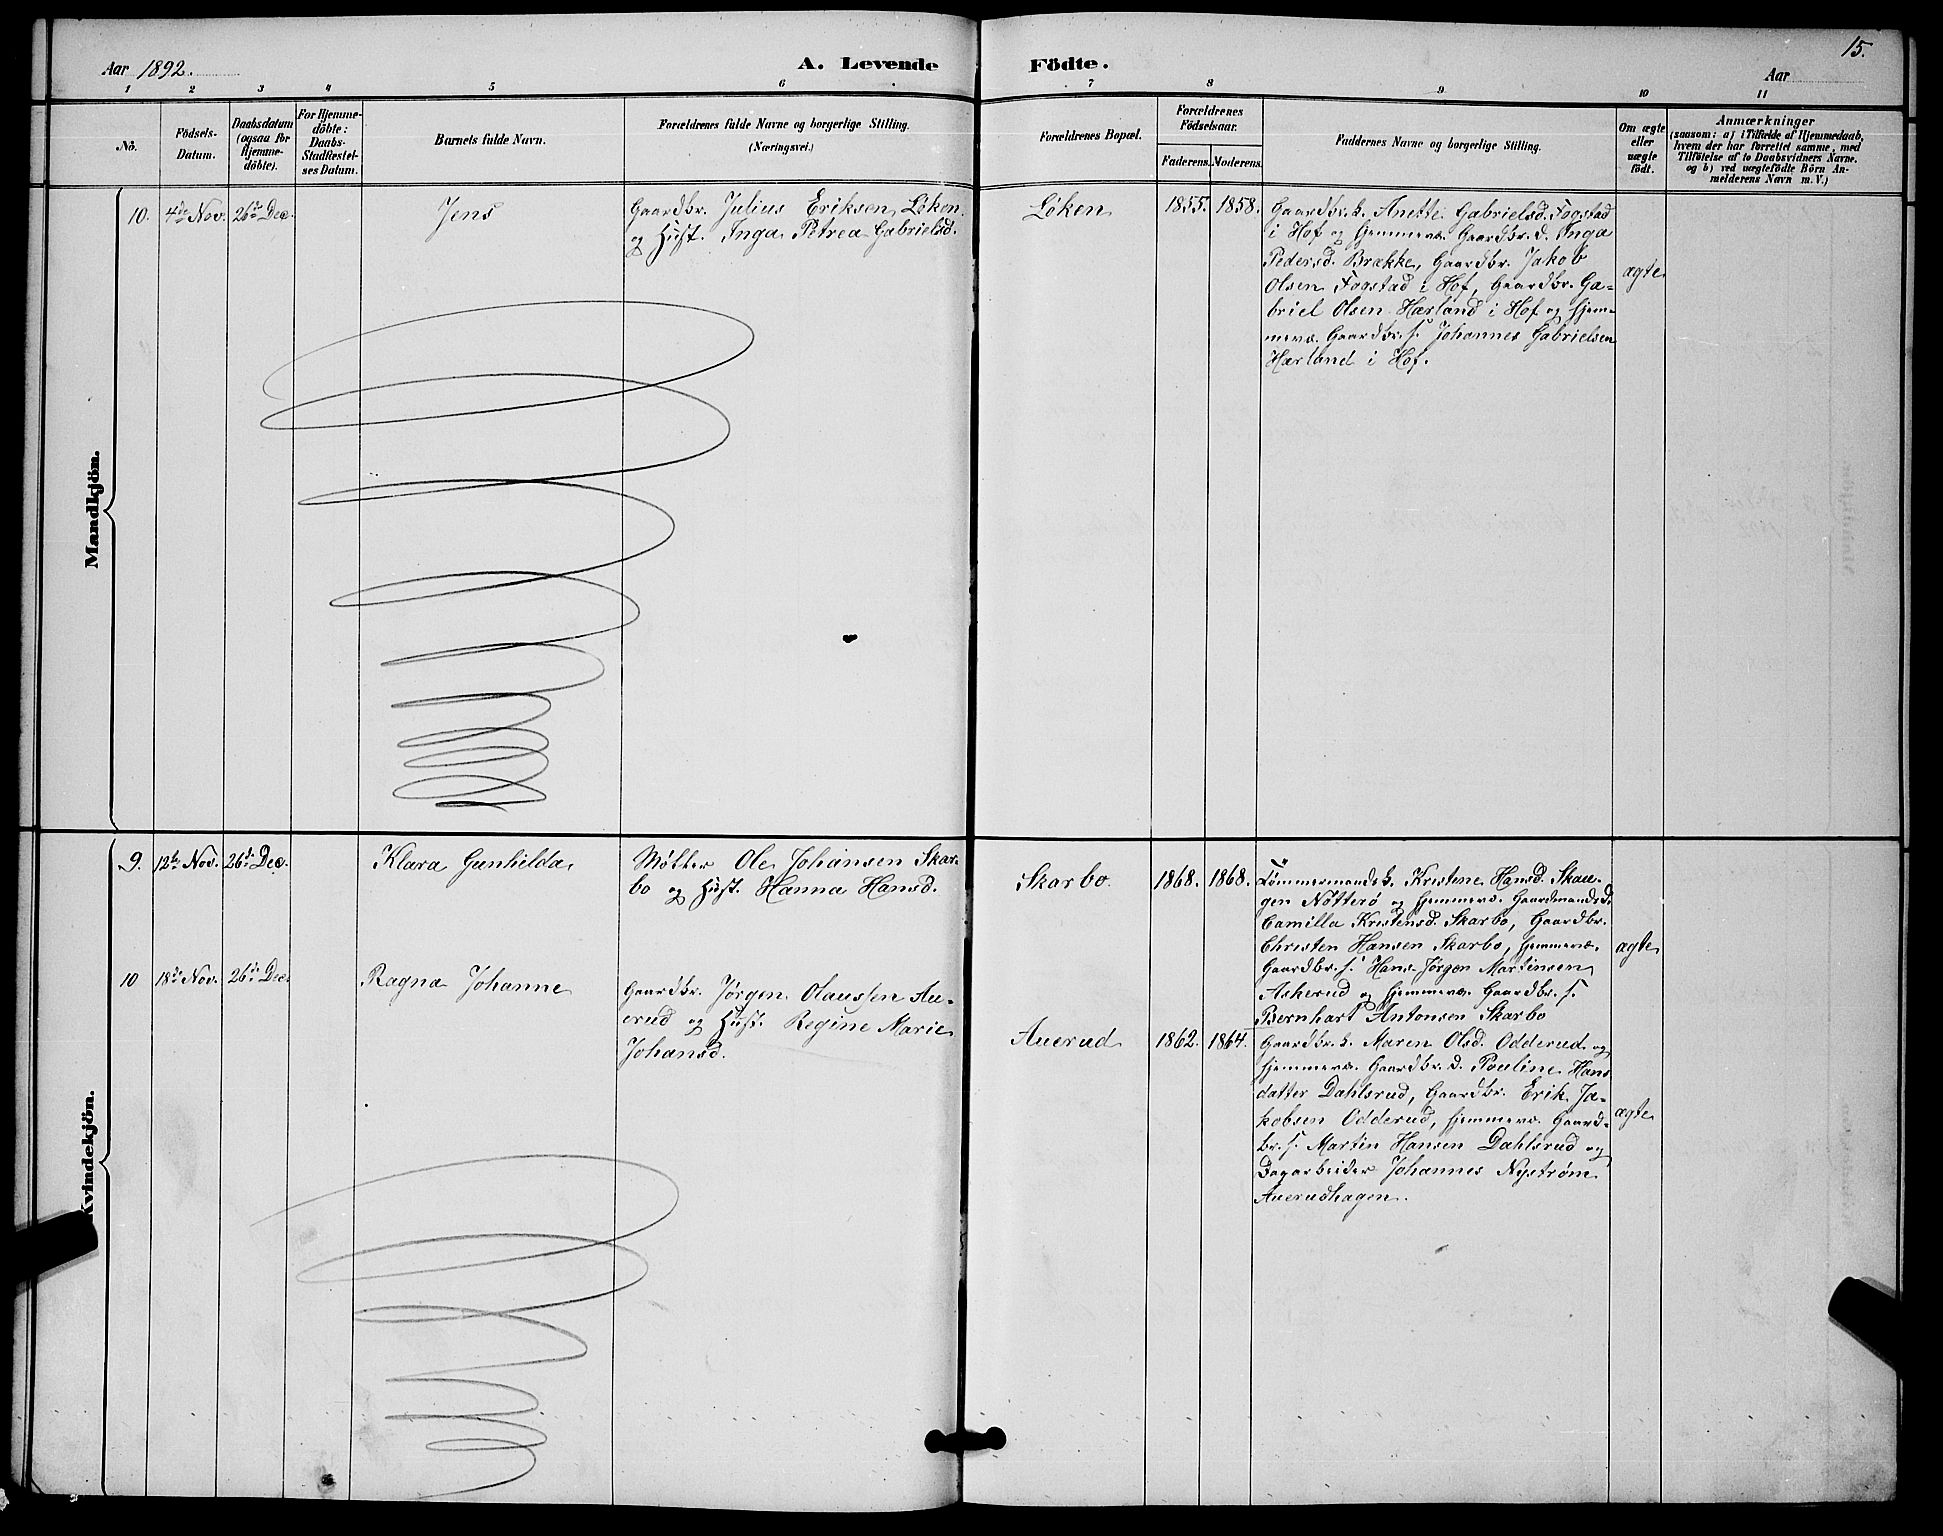 15.
Aar 1892.
A. Levende Födte.
Aar
1 2 3 4 5 6 7 8 9 10 11
No.
Födsels-
Datum.
Daabsdatum
(ogsaa for
Hjemme-
döbte).
For Hjemme-
döbte:
Daabs-
Stadfæstel-
ses Datum.
Barnets fulde Navn.
Forældrenes fulde Navne og borgerlige Stilling.
(Næringsvei.)
Forældrenes Bopæl.
Forældrenes
Födselsaar.
Faderens. Moderens.
Faddernes Navne og borgerlige Stilling.
Om ægte
eller
uægte
födt.
Anmærkninger
(saasom: a) i Tilfælde af Hjemmedaab,
hvem der har forrettet samme, med
Tilföielse af to Daabsvidners Navne.
og b) ved uægtefödte Börn An-
melderens Navn m. V.)
Mandkjön.
10.
4de Nov.
26de Dec.
Jens
Gaardbr. Julius Eriksen Løken
og Hust. Inga Petrea Gabrielsd.
Løken
1855.
1858.
Gaardbr.k. Anette Gabrielsd. Fogstad
i Hof og hjemmevs. Gaardbr.d. Inga
Pedersd. Brække, Gaardbr. Jakob
Olsen Fogstad i Hof, Gaardbr. Ga-
briel Olsen Hærland i Hof og hjem-
mevs. Gaardbr.s. Johannes Gabrielsen
Hærland i Hof.
ægte
Kvindekjön.
9.
12te Nov.
26de Dec.
Klara Gunhilda
Møller Ole Johansen Skar-
bo og Hust. Hanna Hansd.
Skarbo.
1868.
1868.
Tømmermandsk. Kristine Hansd. Skau-
gen Nötterö og hjemmevs. Gaardmandsd.
Camilla Kristensd. Skarbo, Gaardbr.
Christen Hansen Skarbo, hjemmevs.
Gaardbr.s. Hans Jørgen Martinsen
Askerud og hjemmevs. Gaardbr.s.
Bernhart Antonsen Skarbo
ægte
10
18de Nov.
26de Dec.
Ragna Johanne
Gaardbr. Jørgen Olaussen Au-
erud og Hust. Regine Marie
Johansd.
Auerud
1862.
1864.
Gaardbr.k. Maren Olsd. Odderud og
hjemmevs. Gaardbr.d. Pauline Hans
datter Dahlsrud, Gaardbr. Erik Ja-
kobsen Odderud, hjemmevs. Gaard-
br.s. Martin Hansen Dahlsrud og
Dagarbeider Johannes Nyström
Auerudhagen.
ægte